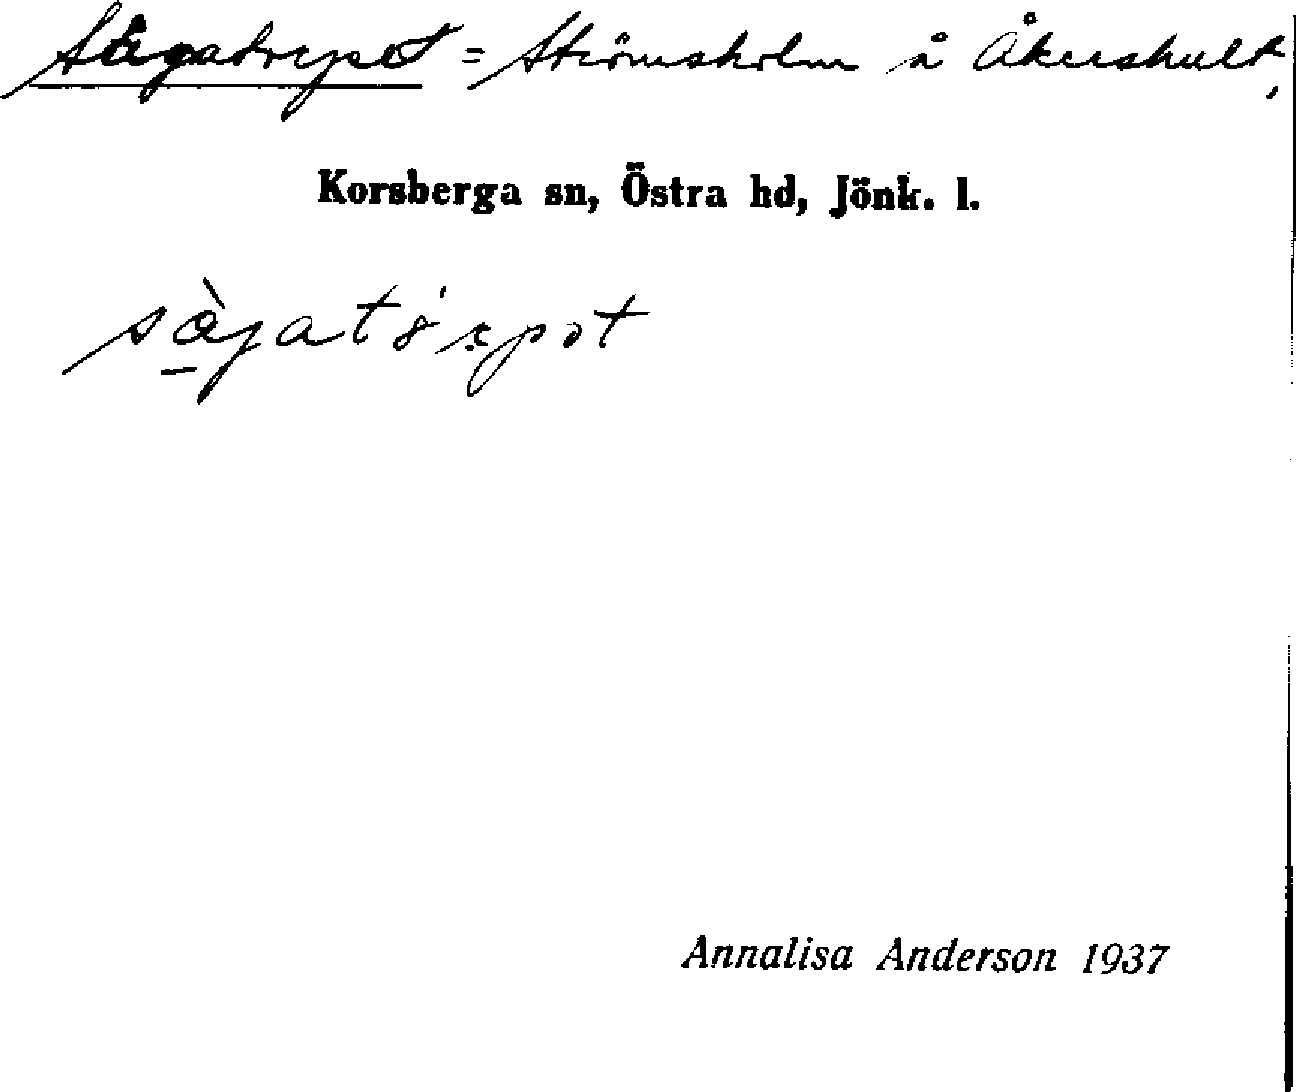 Sågatorpet = Strömsholm å Åkershult,
Korsberga sn, Östra hd, Jönk. l.
Annalisa Anderson 1937